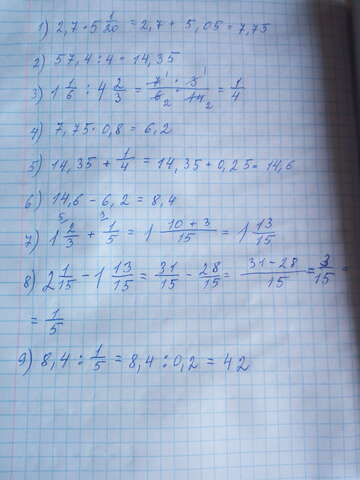 1) 2,7 + 5 1/20 = 2,7 + 5,05 = 7,75
2) 57,4 : 4 = 14,35
3) 1 1/6 : 4 2/3 = 7/6 · 3/14 = 1/4
4) 7,75 · 0,8 = 6,2
5) 14,35 + 1/4 = 14,35 + 0,25 = 14,6
6) 14,6 - 6,2 = 8,4
7) 1 2/3 + 1/5 = 1 10 + 3/15 = 1 13/15
8) 2 1/15 - 1 13/15 = 31/15 - 28/15 = 31-28/15 = 3/15 =
= 1/5
9) 8,4 : 1/5 = 8,4 : 0,2 = 42